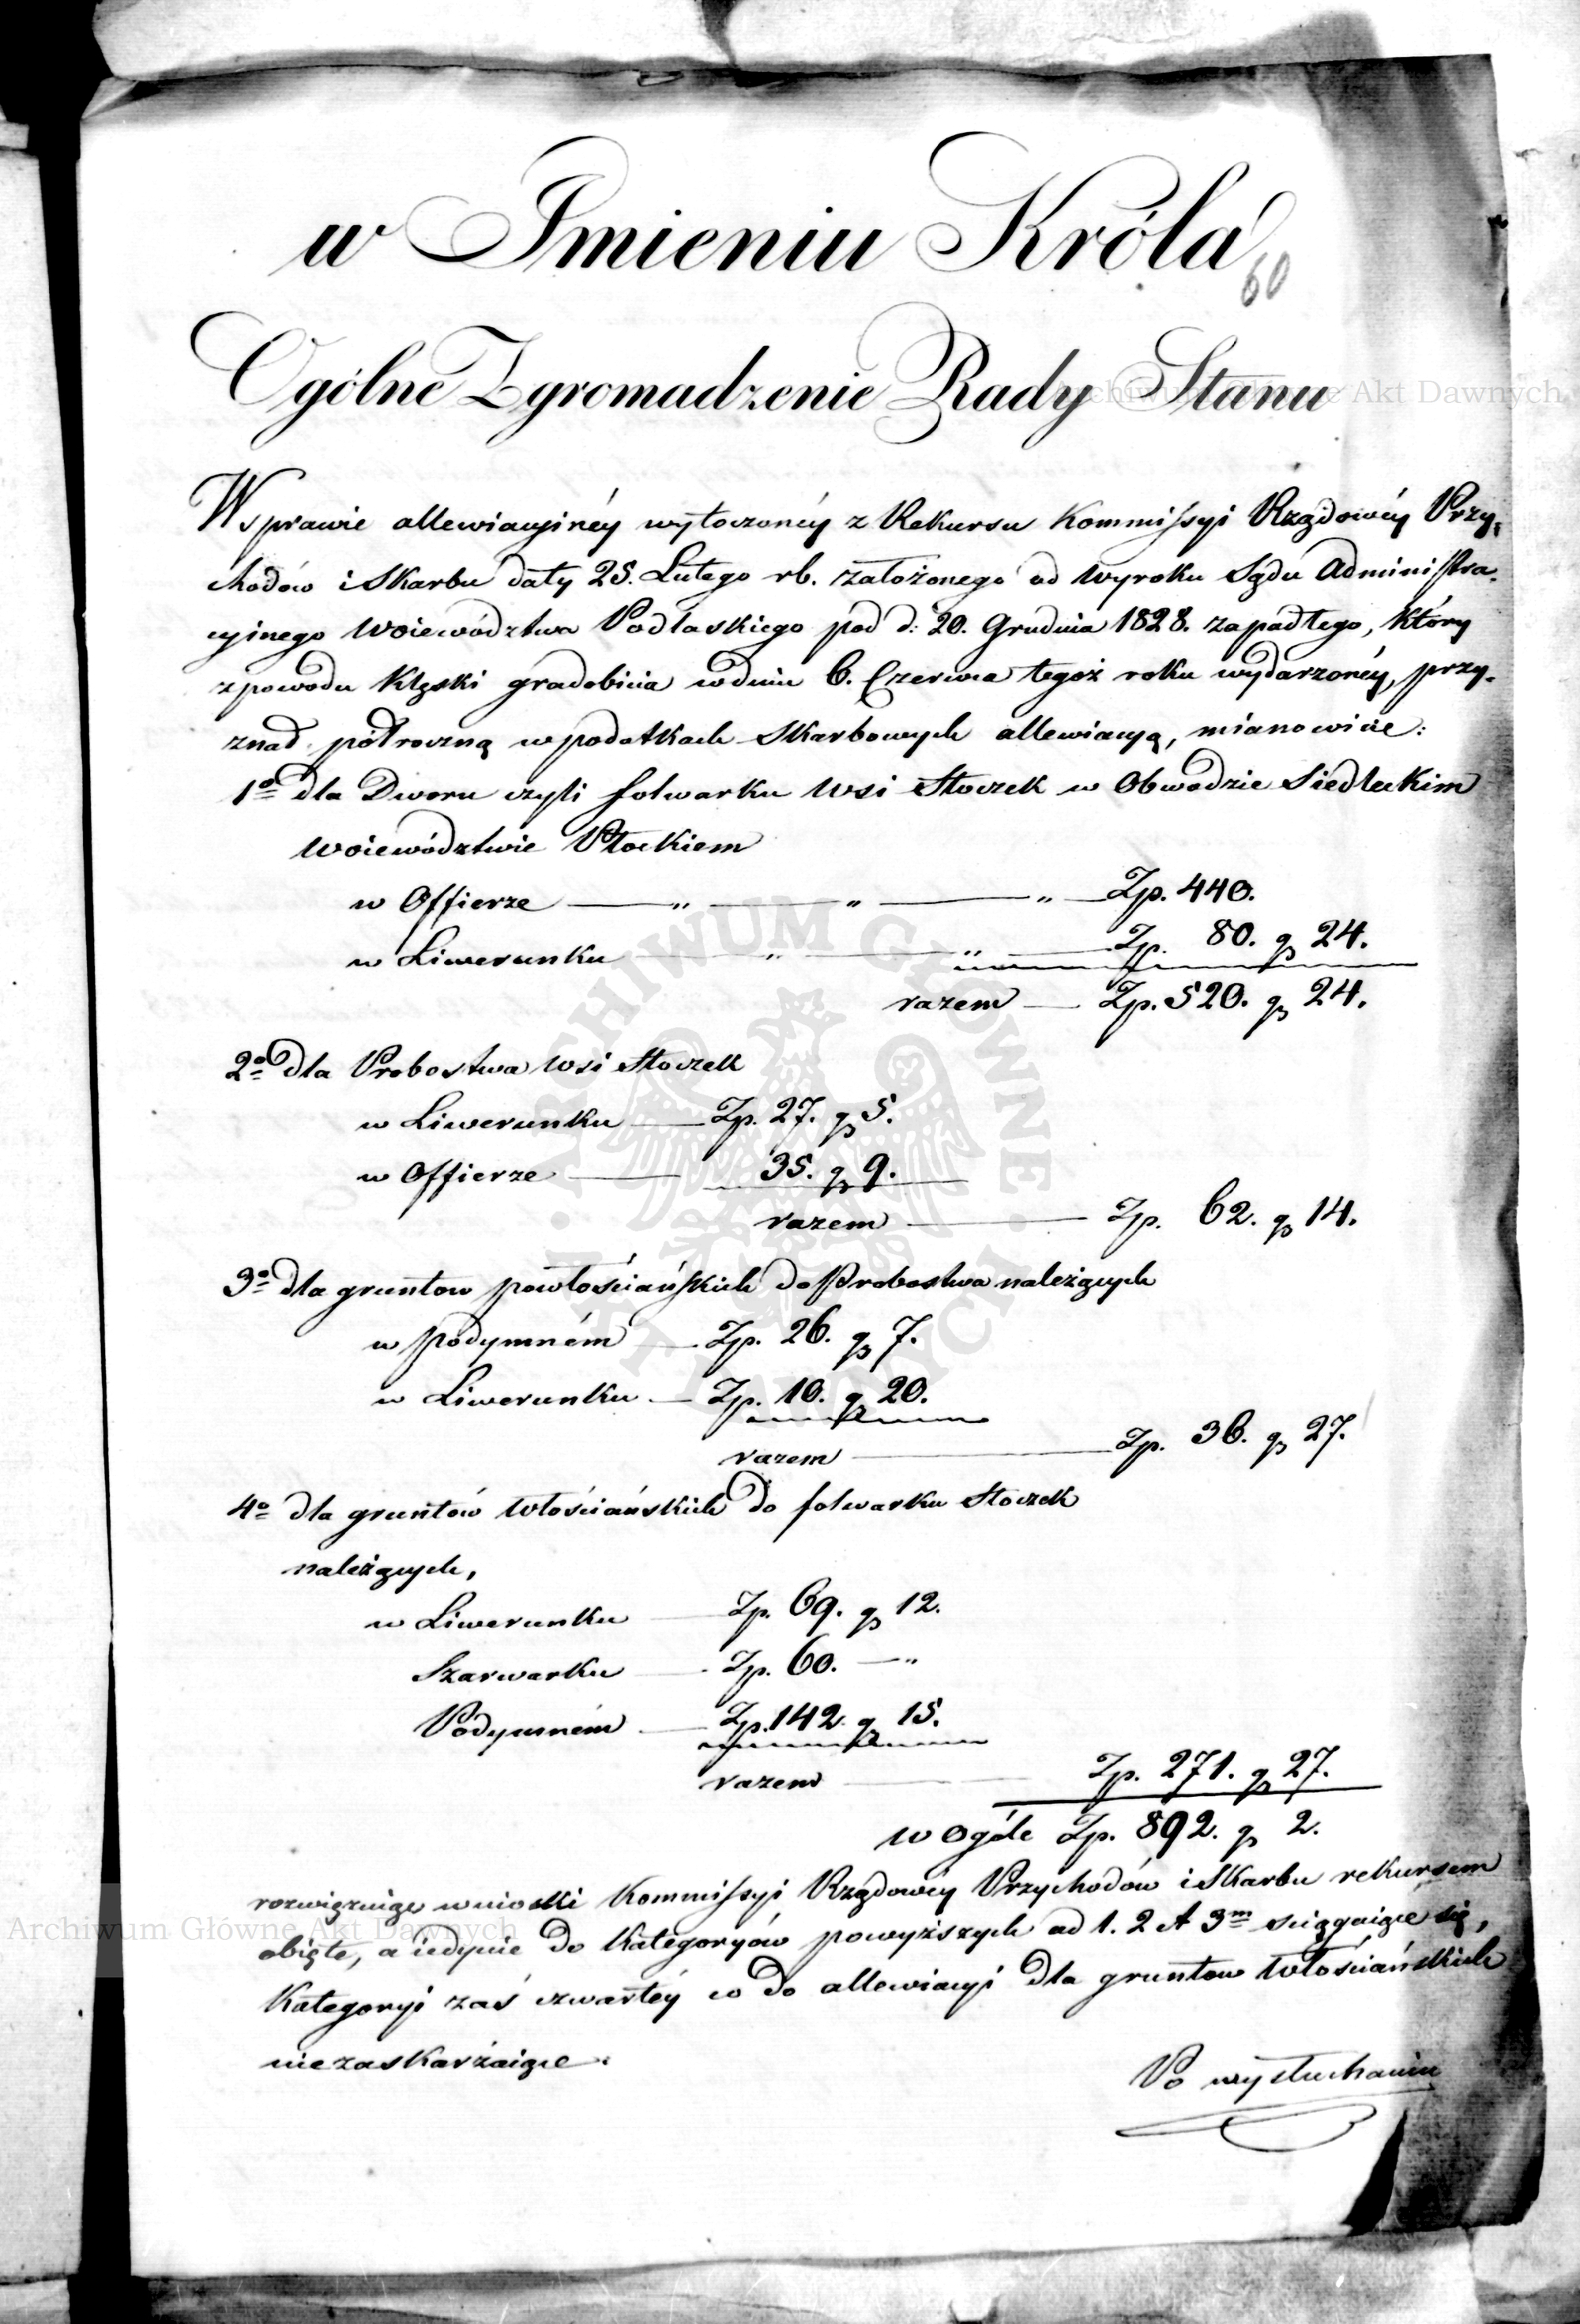 w Imieniu Króla
60
Ogólne Zgromadzenie Rady Stanu
W sprawie allewiacyjnéy wytoczonéy z Rekursu Kommissyi Rządowéy Przy-
chodów i Skarbu daty 25. Lutego rb. założonego od wyroku Sądu Administra-
cyinego Woiewództwa Podlaskiego pod d: 20. Grudnia 1828. zapadłego, który
z powodu klęski gradobicia w dniu 6. Czerwca tegoż roku wydarzonéy, przy-
znał półroczną w podatkach Skarbowych allewiacyą, mianowicie:
1º dla Dworu czyli folwarku Wsi Stoczek w Obwodzie Siedleckim
Woiewództwie Płockiem
w Offierze — „ — „ — „ — Zp. 440.
w Liwerunku — „ — „ — Zp. 80. gr 24.
razem — Zp. 520. gr 24.
2º dla Probostwa wsi Stoczek
w Liwerunku — Zp. 27. gr 5.
w Offierze — 35. gr 9.
razem — Zp. 62. gr 14.
3º dla gruntow powłościańskich do Probostwa należących
w podymném — Zp. 26. gr 7.
w Liwerunku — Zp. 10. gr 20.
razem — Zp. 36. gr 27.
4º dla gruntów włościańskich do folwarku Stoczek
należących,
w Liwerunku — Zp. 69. gr 12.
Szarwarku — Zp. 60. — „
Podymném — Zp. 142. gr 15.
razem — Zp. 271. gr 27.
w Ogóle Zp. 892. gr 2.
rozwiązuiąc wnioski Kommissyi Rządowéy Przychodów i Skarbu rekursem
obięte, a iedynie do kategoryów powyższych ad 1. 2 et 3m ściągaiące się,
Kategoryi zaś czwartéy co do allewiacyi dla gruntow włościańskich
niezaskarżaiące.
Po wysłuchaniu
Archiwum Główne Akt Dawnych
Archiwum Główne Akt Dawnych
ARCHIWUM GŁÓWNE AKT DAWNYCH